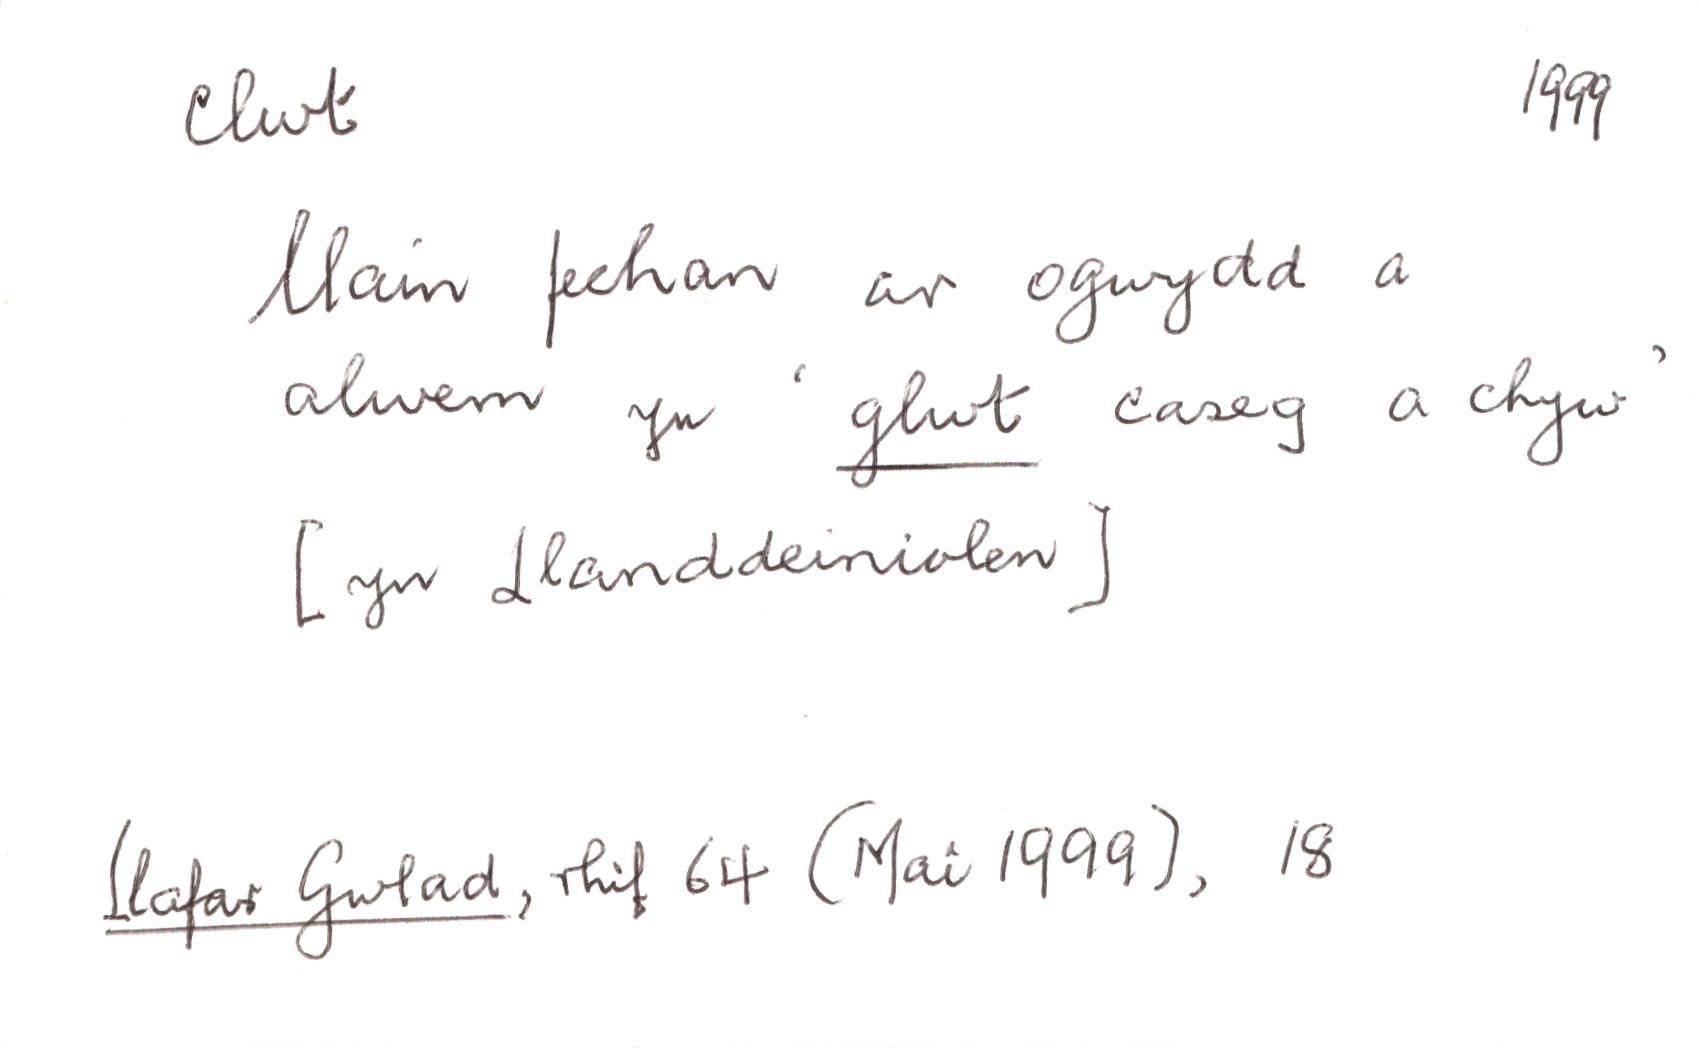 clwt 1999
Llain fechan ar ogwydd a
alwem yn ‘glwt caseg a chyw’
[yn Llanddeiniolen]
Llafar Gwlad, rhif 64 (Mai 1999), 18